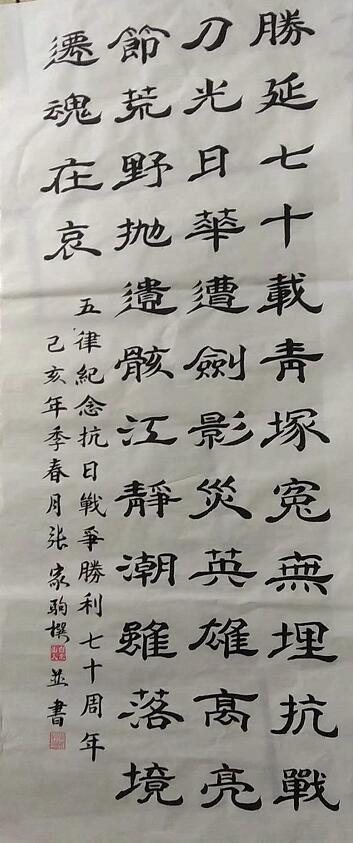 勝延七十載青塚冤無埋抗戰
刀光日華遭劍影災英雄高亮
節荒野抛遺骸江靜潮雖落境
遷魂在哀
五律紀念抗日戰爭勝利七十周年
己亥年季春月張家駒撰並書